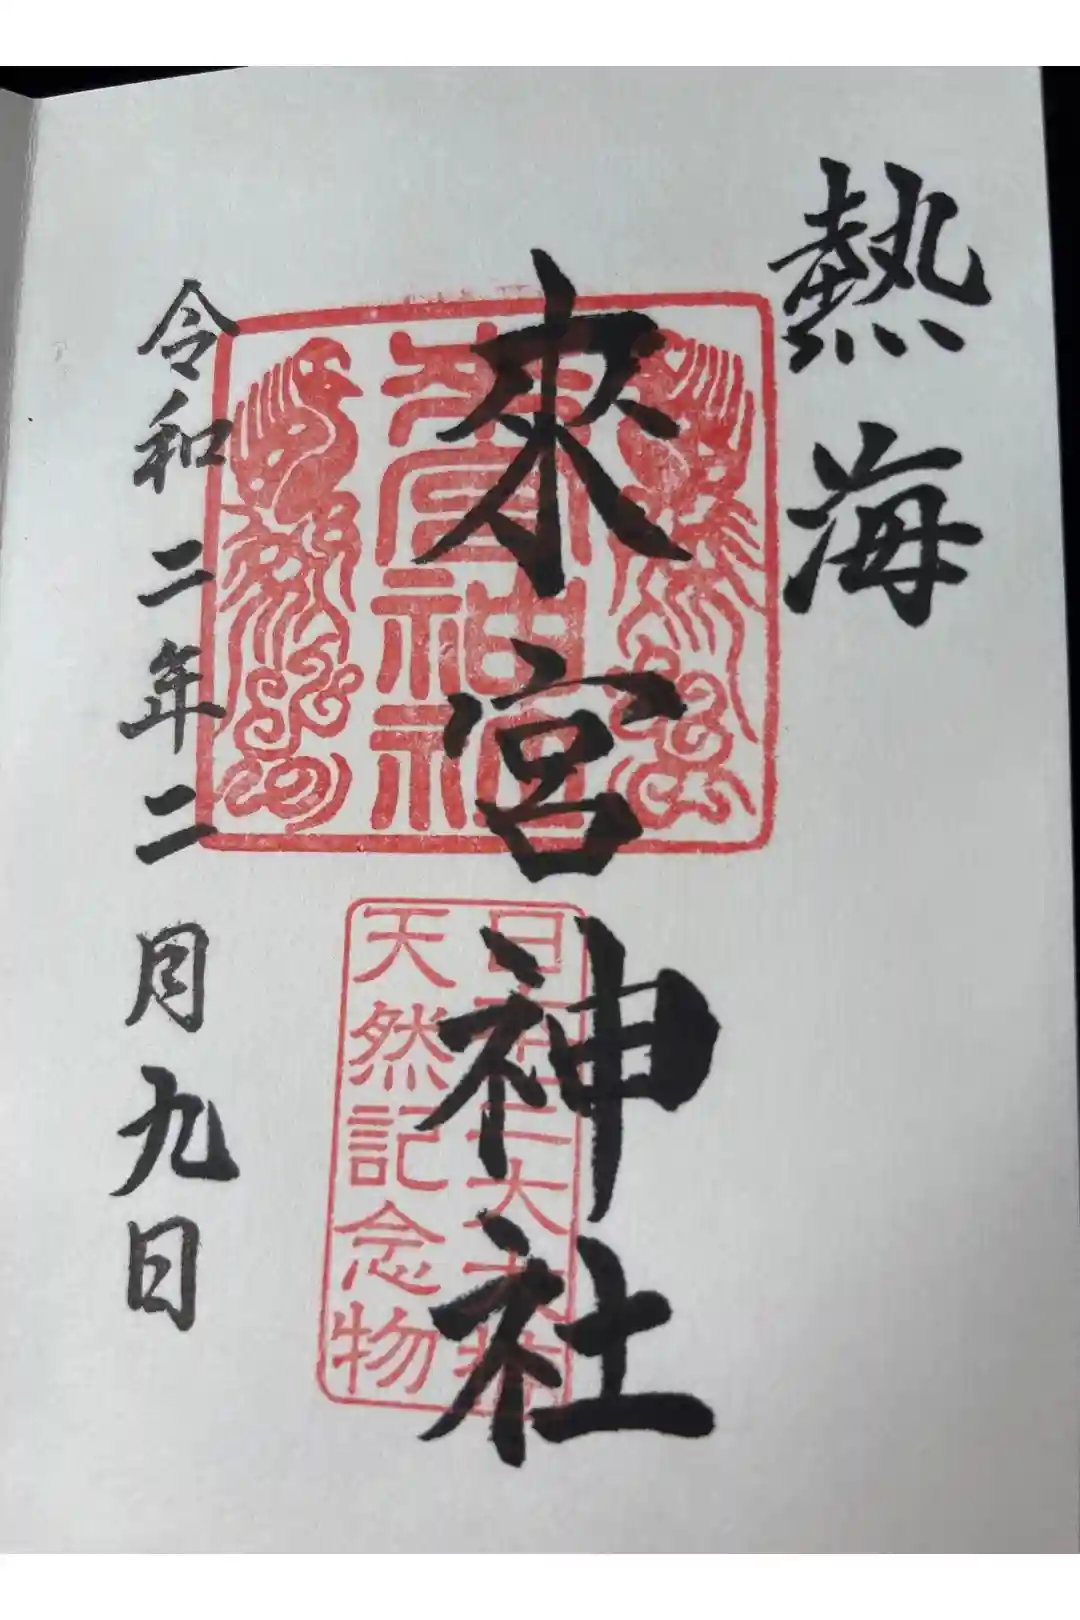 熱海
來宮神社
來宮神社
日本二大大楠
天然記念物
令和二年二月九日